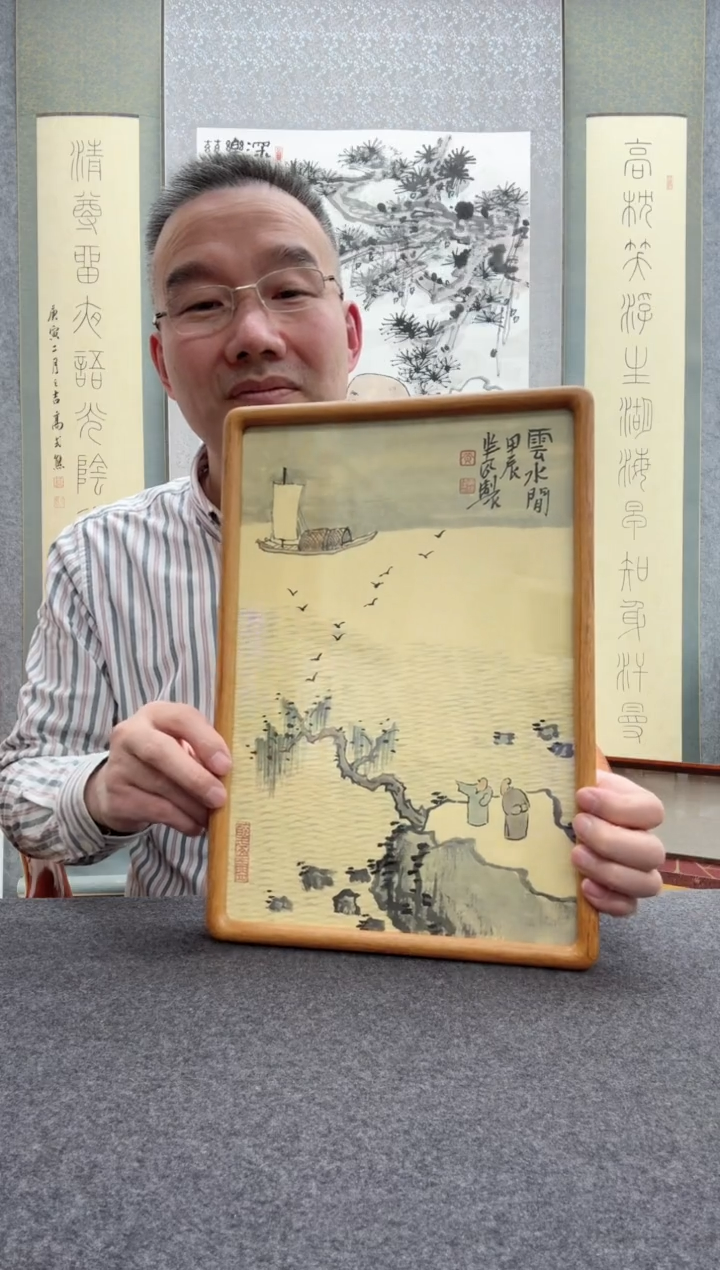 高枕笑浮生湖海早知身汗曼
清尊留夜語光陰
庚寅二月之吉高式熊
雲水間
甲辰
製